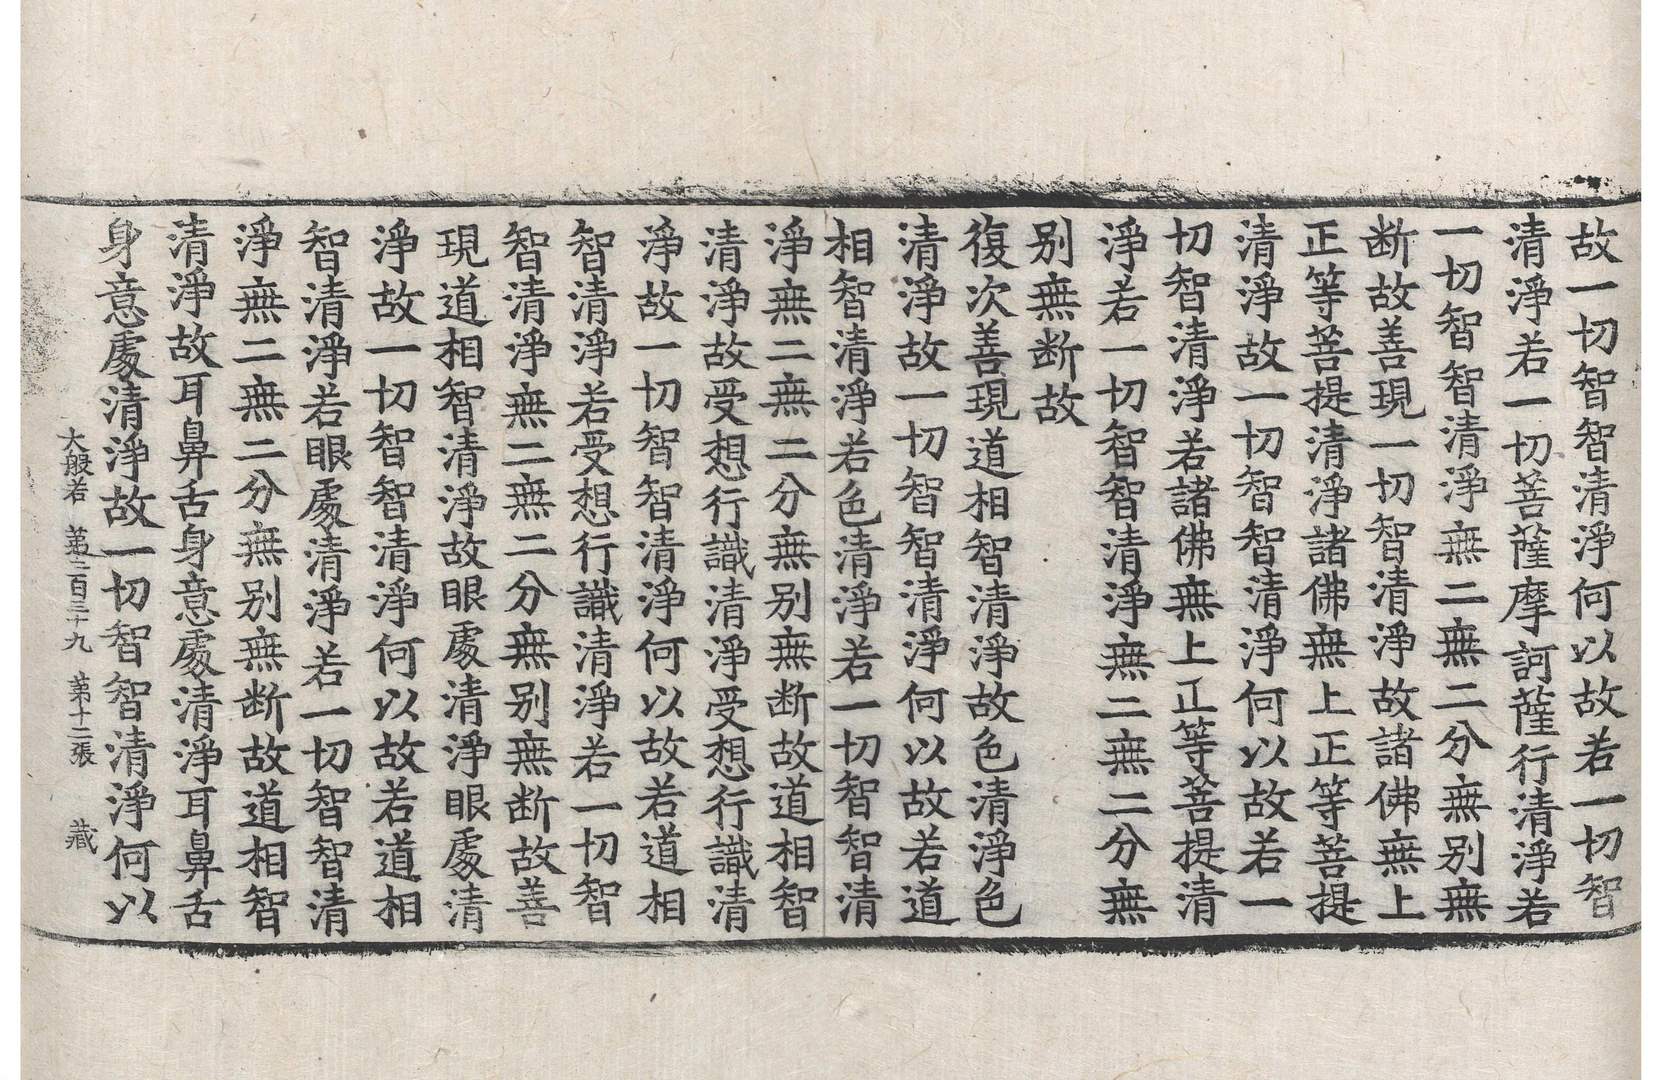 故一切智智清淨何以故若一切智
清淨若一切菩薩摩訶薩行清淨若
一切智智清淨無二無二分無别無
断故善現一切智清淨故諸佛無上
正等菩提清淨諸佛無上正等菩提
清淨故一切智智清淨何以故若一
切智清淨若諸佛無上正等菩提清
淨若一切智智清淨無二無二分無
别無断故
復次善現道相智清淨故色清淨色
清淨故一切智智清淨何以故若道
相智清淨若色清淨若一切智智清
淨無二無二分無别無断故道相智
清淨故受想行識清淨受想行識清
淨故一切智智清淨何以故若道相
智清淨若受想行識清淨若一切智
智清淨無二無二分無别無断故善
現道相智清淨故眼處清淨眼處清
淨故一切智智清淨何以故若道相
智清淨若眼處清淨若一切智智清
淨無二無二分無别無断故道相智
清淨故耳鼻舌身意處清淨耳鼻舌
身意處清淨故一切智智清淨何以
大般若 第二百三十九 第十二張 藏